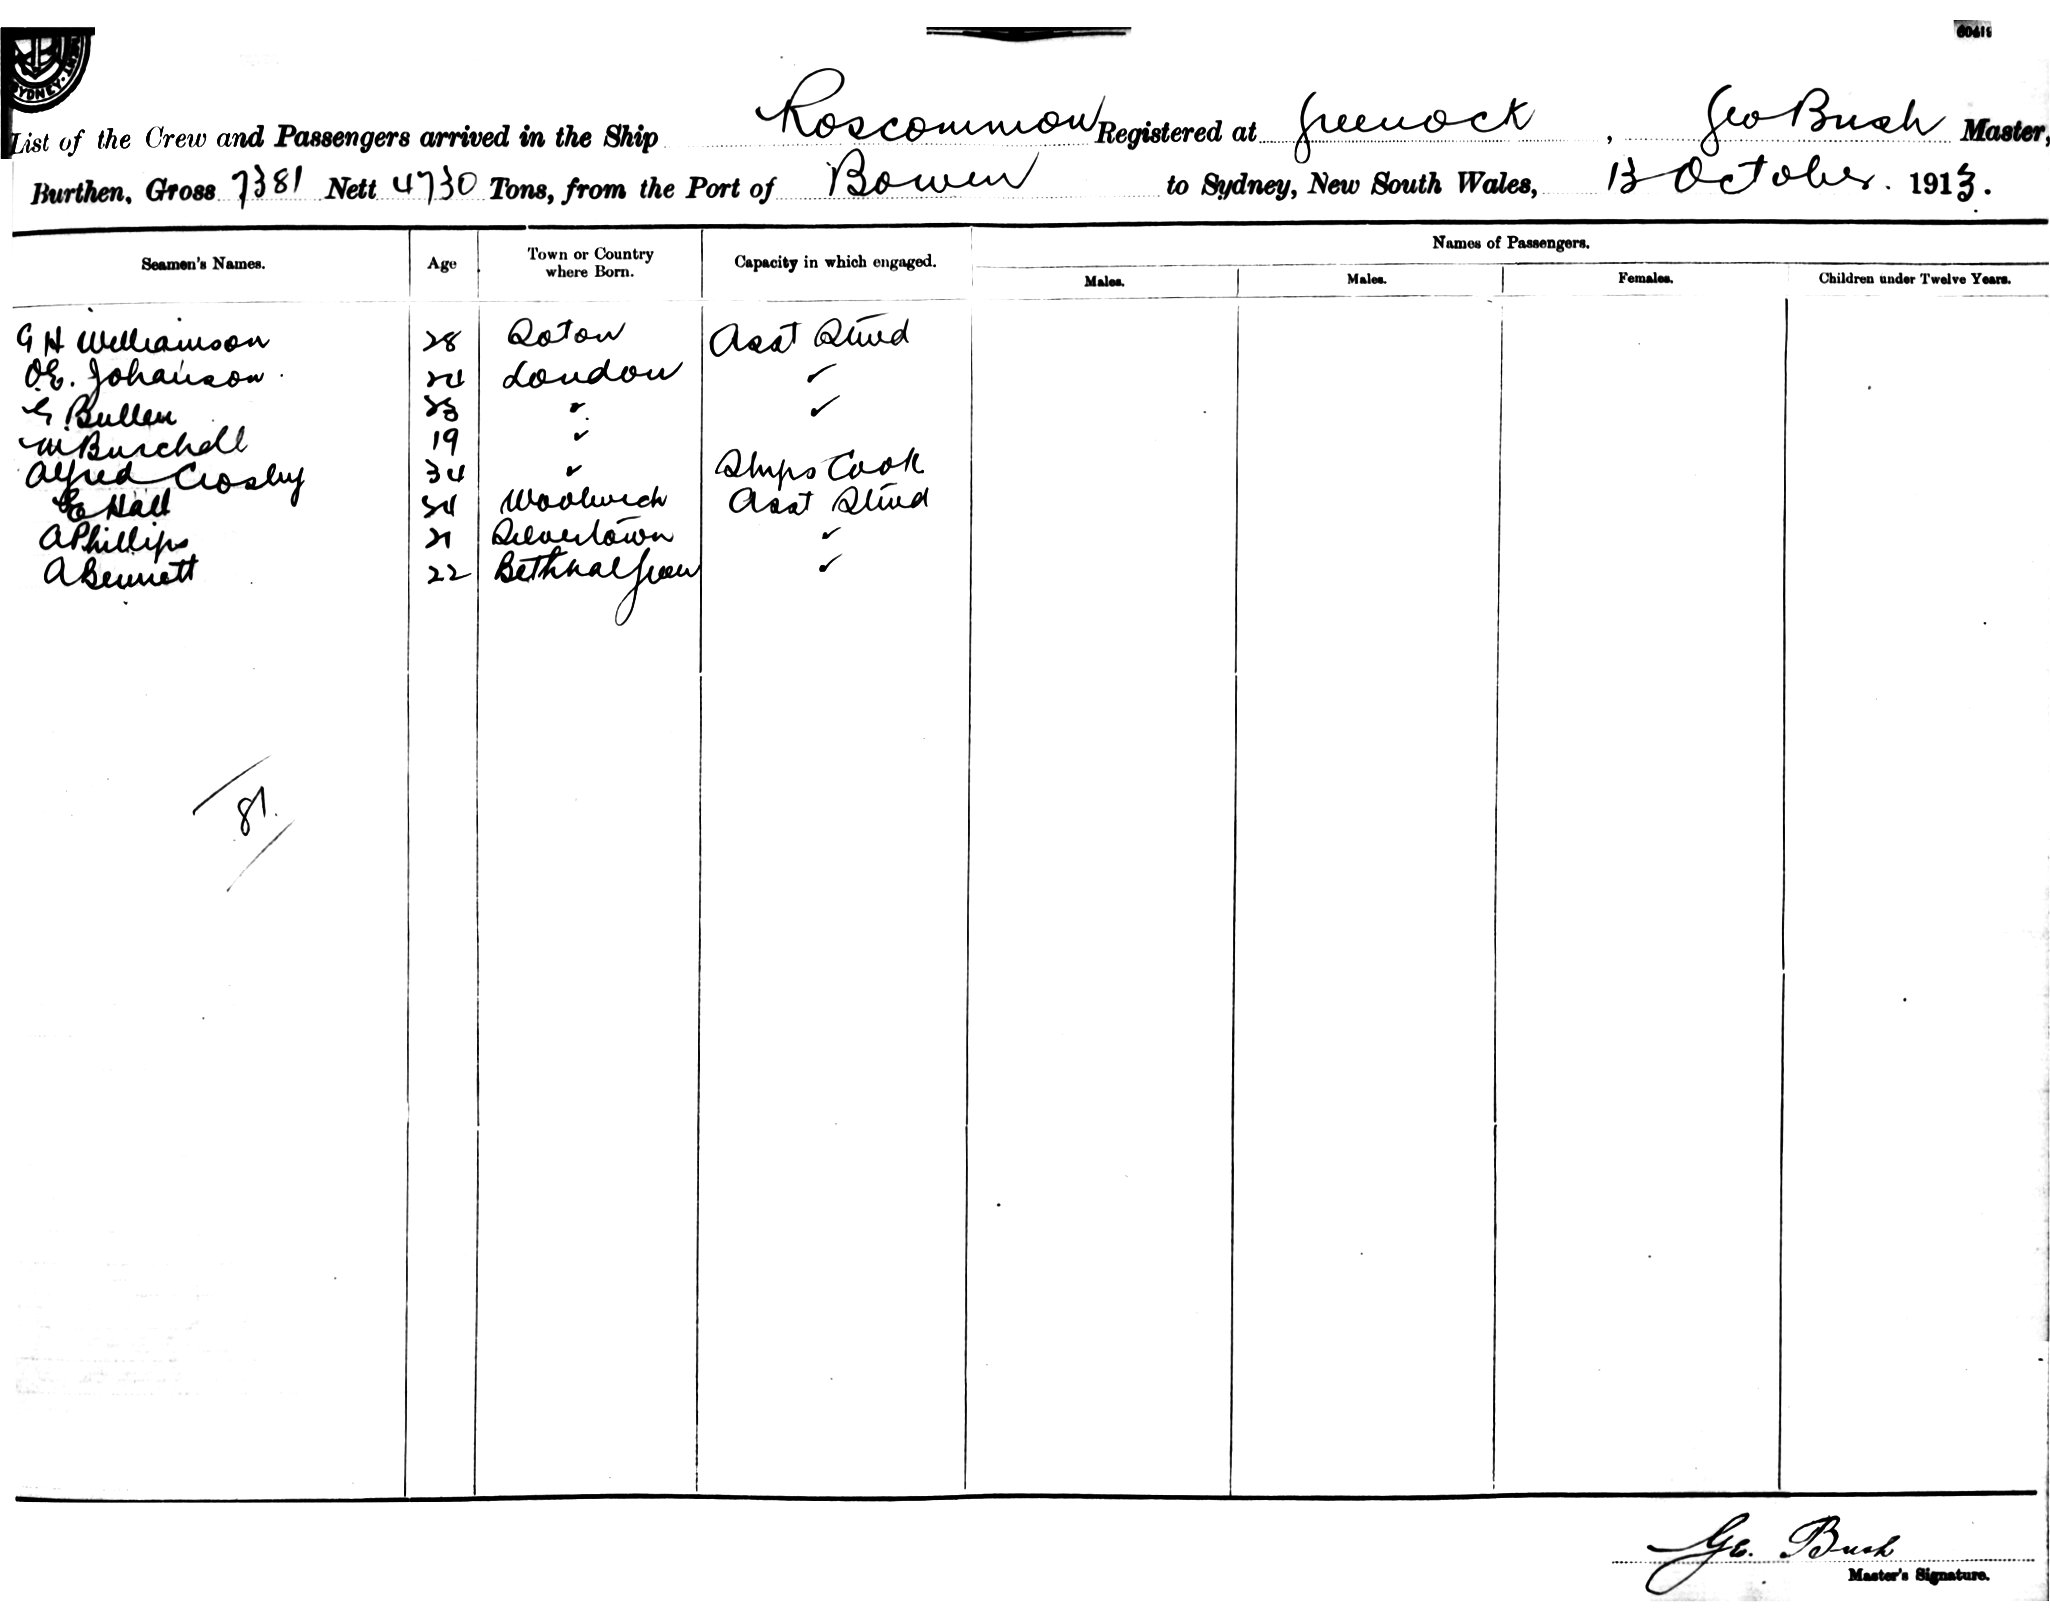 SYDNEY
List of the Crew and Passengers arrived in the Ship Roscommon Registered at Greenock, Geo Bush Master,
Burthen, Gross 7381 Nett 4730 Tons, from the Port of Bowen to Sydney, New South Wales, 13 October. 1913.
Seamen's Names. Age Town or Country where Born. Capacity in which engaged. Names of Passengers.
Males. Males. Females. Children under Twelve Years.
G H Williamson 28 Soton Asst Stwd
O.E. Johanson 24 London ✓
G Bullen 23 ✓ ✓
W Burchell 19 ✓
Alfred Crosby 34 ✓ Ships Cook
E Hall 34 Woolwich Asst Stwd
A Phillips 21 Silvertown ✓
A Bennett 22 Bethnal Green ✓
81.
Geo. Bush
Master's Signature.